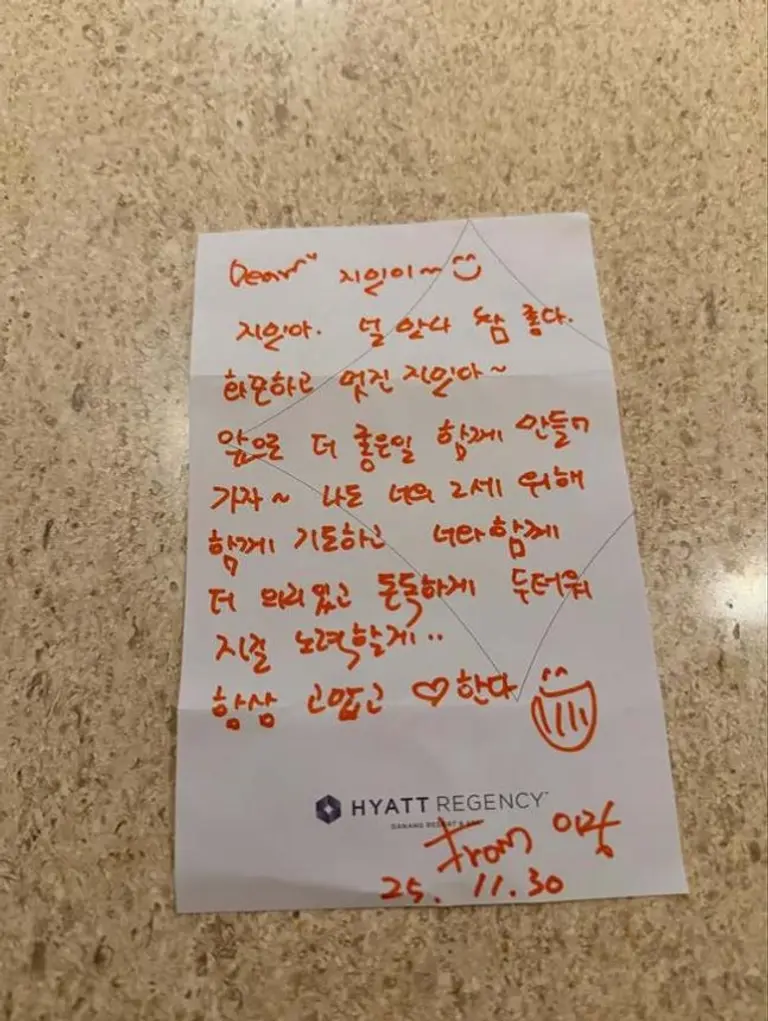 Dear~ 지인이~
지인아. 널 만나 참 좋다.
화끈하고 멋진 지인다~
앞으로 더 좋은일 함께 만들어
가자~ 나도 너의 2세 위해
함께 기도하고 너와 함께
더 의리있고 돈독하게 두터워
지길 노력할게..
항상 고맙고 ♡한다
HYATT REGENCY™
DANANG RESORT & SPA
From
25. 11.30